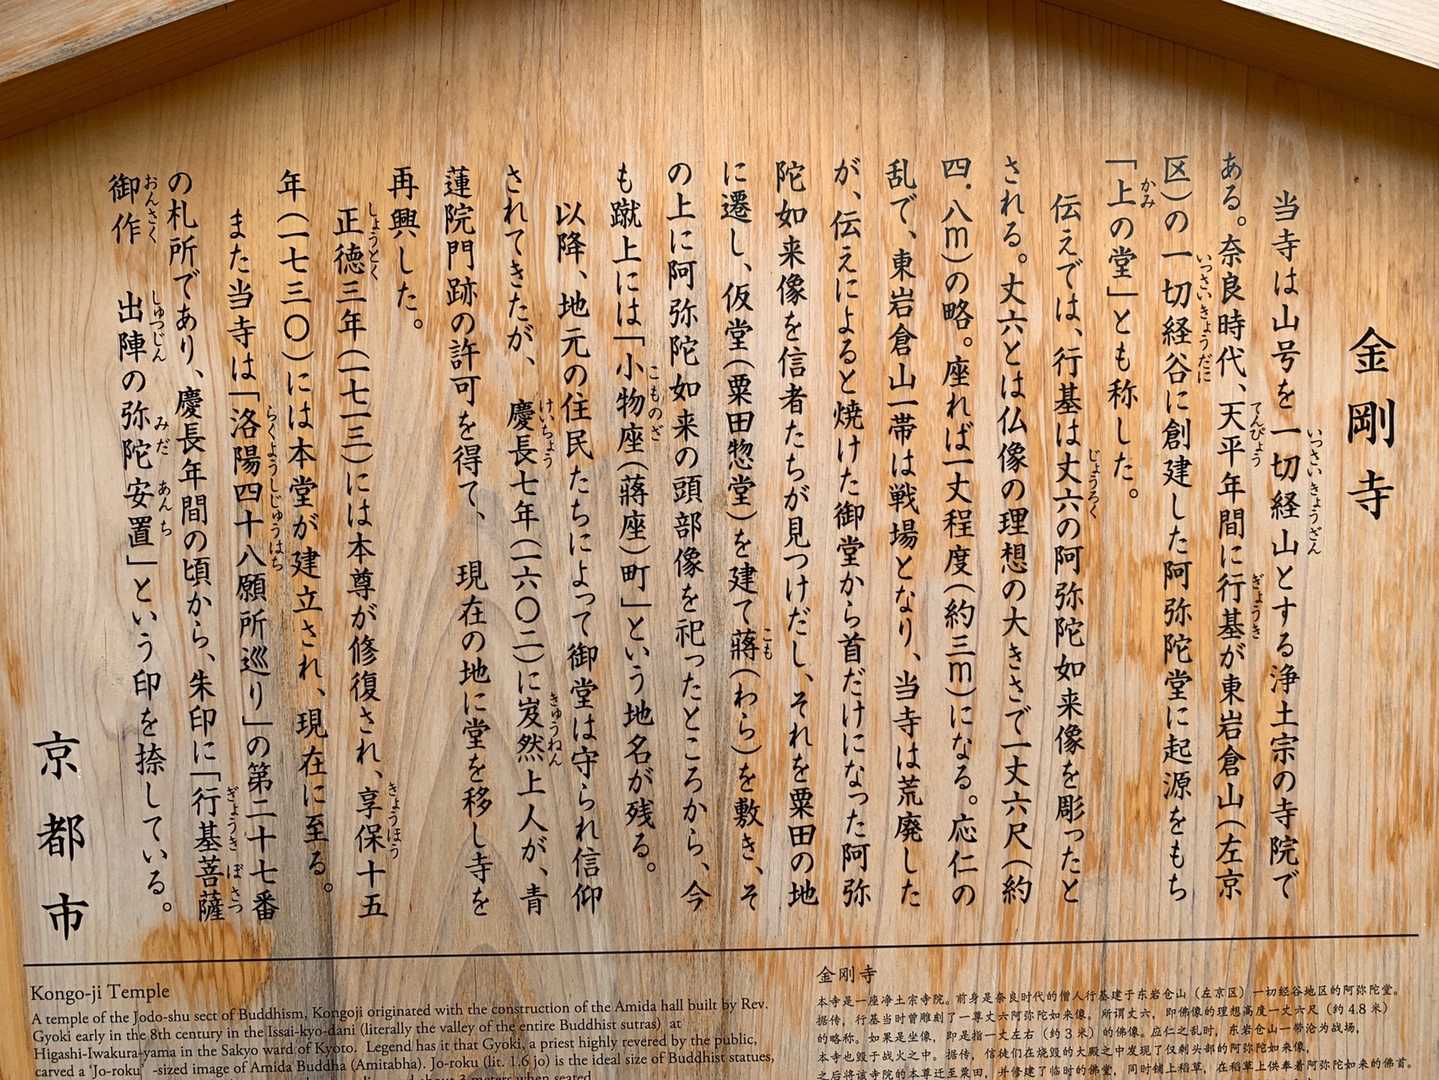 金剛寺
当寺は山号を一切経山とする浄土宗の寺院で
ある。奈良時代、天平年間に行基が東岩倉山(左京
区)の一切経谷に創建した阿弥陀堂に起源をもち
「上の堂」とも称した。
伝えでは、行基は丈六の阿弥陀如来像を彫ったと
される。丈六とは仏像の理想の大きさで一丈六尺(約
四・八m)の略。座れば一丈程度(約三m)になる。応仁の
乱で、東岩倉山一帯は戦場となり、当寺は荒廃した
が、伝えによると焼けた御堂から首だけになった阿弥
陀如来像を信者たちが見つけだし、それを粟田の地
に遷し、仮堂(粟田惣堂)を建て蒋(わら)を敷き、そ
の上に阿弥陀如来の頭部像を祀ったところから、今
も蹴上には「小物座(蒋座)町」という地名が残る。
以降、地元の住民たちによって御堂は守られ信仰
されてきたが、慶長七年(一六〇二)に岌然上人が、青
蓮院門跡の許可を得て、現在の地に堂を移し寺を
再興した。
正徳三年(一七一三)には本尊が修復され、享保十五
年(一七三〇)には本堂が建立され、現在に至る。
また当寺は「洛陽四十八願所巡り」の第二十七番
の札所であり、慶長年間の頃から、朱印に「行基菩薩
御作 出陣の弥陀安置」という印を捺している。
京都市
Kongo-ji Temple
A temple of the Jodo-shu sect of Buddhism, Kongoji originated with the construction of the Amida hall built by Rev.
Gyoki early in the 8th century in the Issai-kyo-dani (literally the valley of the entire Buddhist sutras) at
Higashi-Iwakura-yama in the Sakyo ward of Kyoto. Legend has it that Gyoki, a priest highly revered by the public,
carved a 'Jo-roku' -sized image of Amida Buddha (Amitabha). Jo-roku (lit. 1.6 jo) is the ideal size of Buddhist statues,
about 3 meters when seated
金刚寺
本寺是一座净土宗寺院。前身是奈良时代的僧人行基建于东岩仓山(左京区)一切经谷地区的阿弥陀堂。
据传,行基当时曾雕刻了一尊丈六阿弥陀如来像,所谓丈六,即佛像的理想高度一丈六尺(约4.8米)
的略称。如果是坐像,即是指一丈左右(约3米)的佛像。应仁之乱时,东岩仓山一带沦为战场,
本寺也毁于战火之中。据传,信徒们在烧毁的大殿之中发现了仅剩头部的阿弥陀如来像,
之后将该寺院的本尊迁至粟田,并修建了临时的佛堂,同时铺上稻草,在稻草上供奉着阿弥陀如来的佛首。